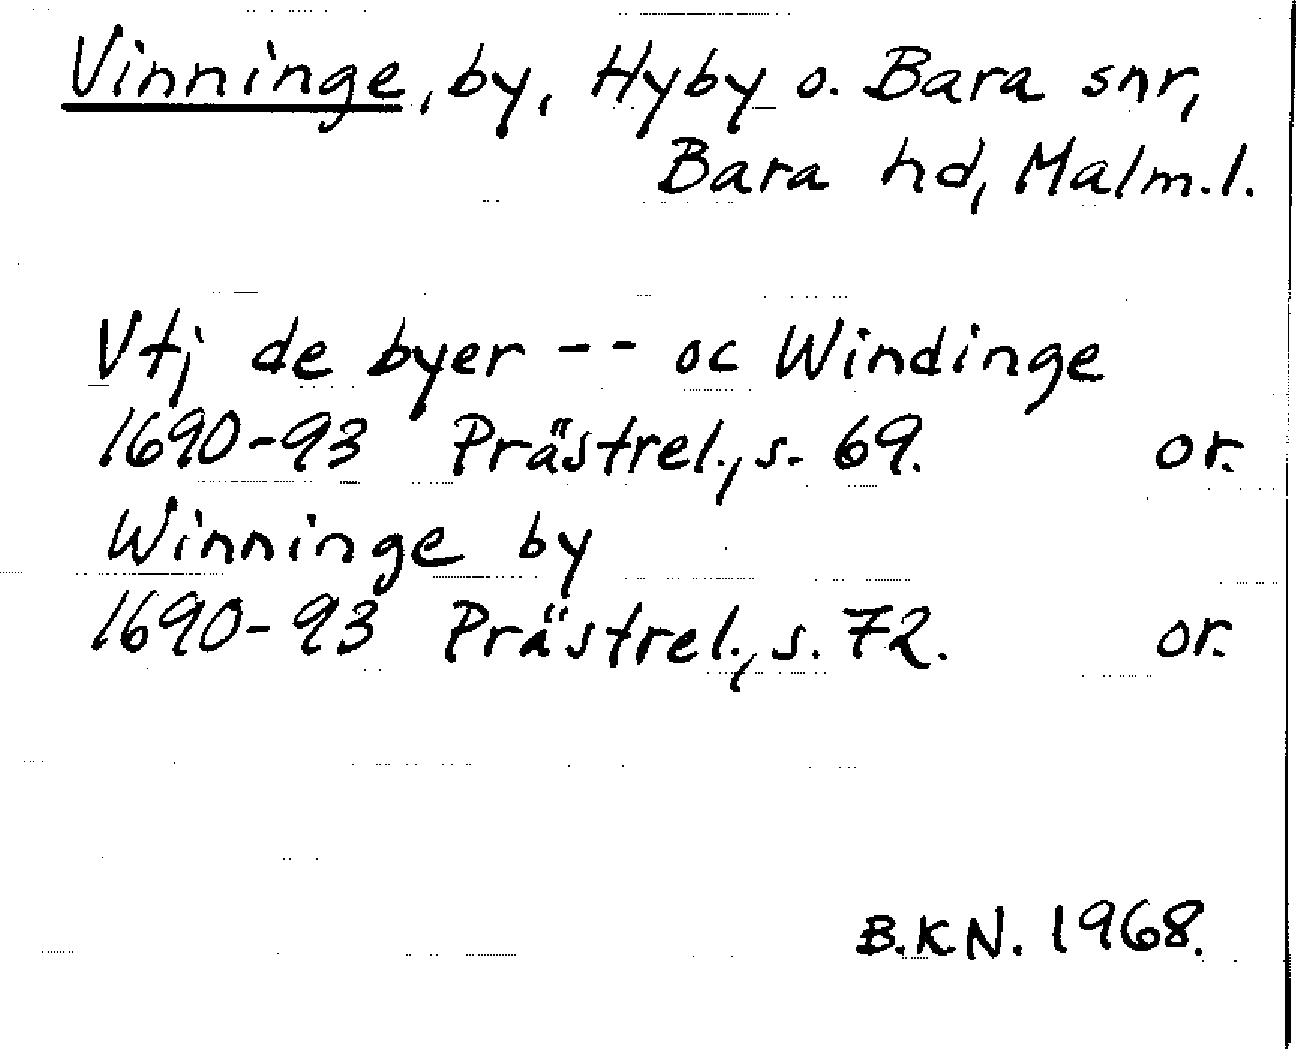 Vinninge, by, Hyby o. Bara snr,
Bara hd, Malm.l.
Vtj de byer -- oc Windinge
1690-93 Prästrel., s. 69. or.
Winninge by
1690-93 Prästrel., s. 72. or.
B.K.N. 1968.